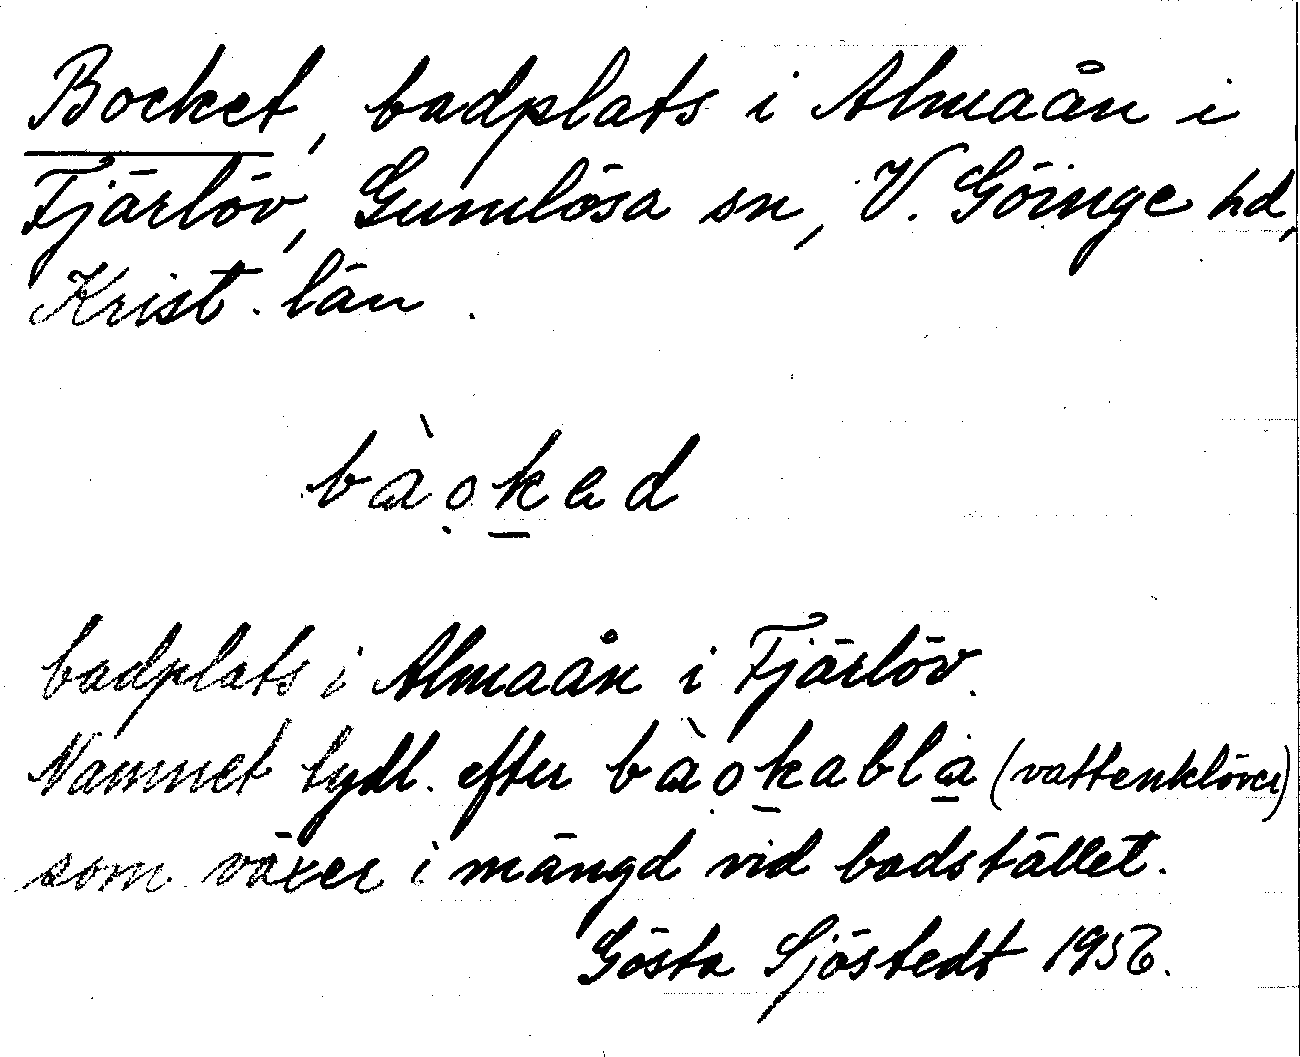 Bocket, badplats i Almaån i
Fjärlöv, Gumlösa sn, V. Göinge hd,
Krist. län.
bàọḵad
badplats i Almaån i Fjärlöv.
Namnet tydl. efter bàọḵabla̱ (vattenklöver)
som växer i mängd vid badstället.
Gösta Sjöstedt 1956.